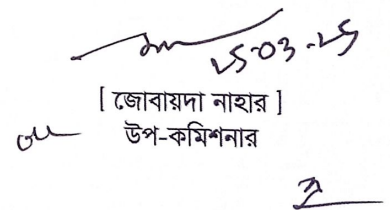 ২৫-০৩-২৫
[ জোবায়দা নাহার ]
উপ-কমিশনার